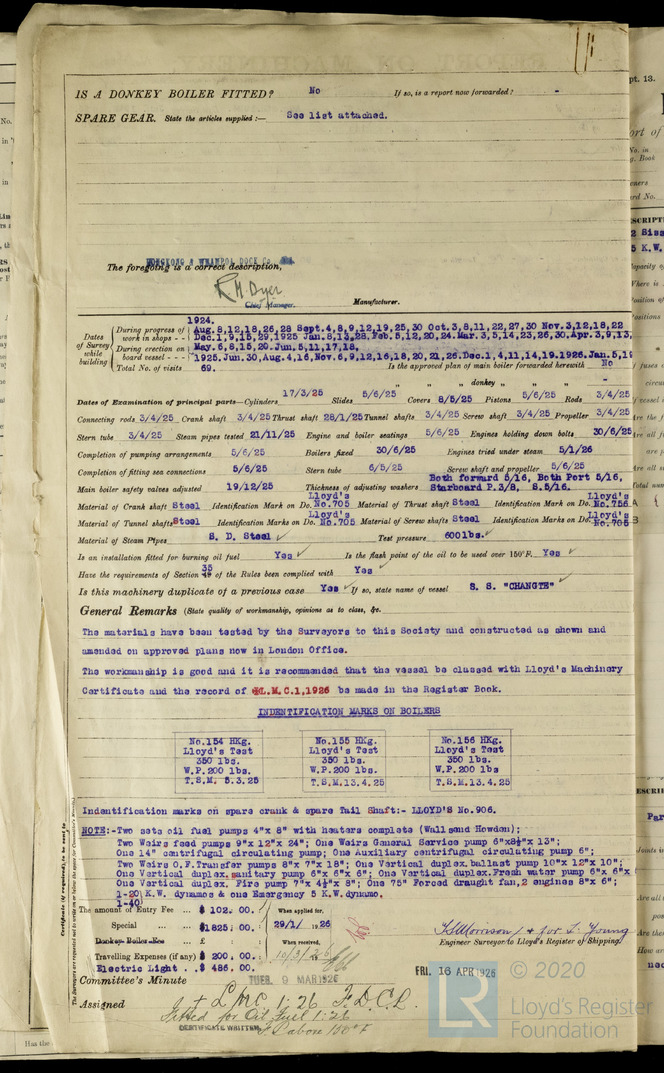 IS A DONKEY BOILER FITTED? No If so, is a report now forwarded? -
SPARE GEAR. State the articles supplied :— See list attached.
HONGKONG & WHAMPOA DOCK Co.
The foregoing is a correct description,
R M Dyer
Chief Manager. Manufacturer.
Dates of Survey while building
During progress of work in shops - -
1924.
Aug.8,12,18,26,28 Sept.4,8,9,12,19,25,30 Oct.3,8,11,22,27,30 Nov.3,12,18,22
Dec.1,9,15,29,1925 Jan.8,13,28,Feb.5,12,20,24.Mar.3,5,14,23,26,30.Apr.3,9,13,
During erection on board vessel - - -
May.6,8,15,20.Jun.5,11,17,18,
1925.Jun.30,Aug.4,16,Nov.6,9,12,16,18,20,21,26.Dec.1,4,11,14,19.1926.Jan.5,19
Total No. of visits 69. Is the approved plan of main boiler forwarded herewith No
" " donkey " " " -
Dates of Examination of principal parts—Cylinders 17/3/25 Slides 5/6/25 Covers 8/5/25 Pistons 5/6/25 Rods 3/4/25
Connecting rods 3/4/25 Crank shaft 3/4/25 Thrust shaft 28/1/25 Tunnel shafts 3/4/25 Screw shaft 3/4/25 Propeller 3/4/25
Stern tube 3/4/25 Steam pipes tested 21/11/25 Engine and boiler seatings 5/6/25 Engines holding down bolts 30/6/25
Completion of pumping arrangements 5/6/25 Boilers fixed 30/6/25 Engines tried under steam 5/1/26
Completion of fitting sea connections 5/6/25 Stern tube 6/5/25 Screw shaft and propeller 5/6/25
Main boiler safety valves adjusted 19/12/25 Thickness of adjusting washers Both forward 5/16, Both Port 5/16, Starboard P.3/8, S.5/16.
Material of Crank shaft Steel Identification Mark on Do. Lloyd's No.705 Material of Thrust shaft Steel Identification Mark on Do. Lloyd's No.756
Material of Tunnel shafts Steel Identification Marks on Do. Lloyd's No.705 Material of Screw shafts Steel Identification Marks on Do. Lloyd's No.705
Material of Steam Pipes S. D. Steel ✓ Test pressure 600lbs. ✓
Is an installation fitted for burning oil fuel Yes ✓ Is the flash point of the oil to be used over 150°F. Yes ✓
Have the requirements of Section 35 of the Rules been complied with Yes ✓
Is this machinery duplicate of a previous case Yes ✓ If so, state name of vessel S. S. "CHANGTE" ✓
General Remarks (State quality of workmanship, opinions as to class, &c.
The materials have been tested by the Surveyors to this Society and constructed as shown and
amended on approved plans now in London Office.
The workmanship is good and it is recommended that the vessel be classed with Lloyd's Machinery
Certificate and the record of ✠L.M.C.1,1926 be made in the Register Book.
INDENTIFICATION MARKS ON BOILERS
No.154 HKg. No.155 HKg. No.156 HKg.
Lloyd's Test Lloyd's Test Lloyd's Test
350 lbs. 350 lbs. 350 lbs.
W.P.200 lbs. W.P.200 lbs W.P.200 lbs
T.S.M. 5.3.25 T.S.M.13.4.25 T.S.M.13.4.25
Indentification marks on spare crank & spare Tail Shaft:- LLOYD'S No.906.
NOTE:-Two sets oil fuel pumps 4"x 8" with heaters complete (Wallsend Howden);
Two Weirs feed pumps 9"x 12"x 24"; One Weirs General Service pump 6"x8½"x 13";
One 14" centrifugal circulating pump; One Auxiliary centrifugal circulating pump 6";
Two Weirs O.F.Transfer pumps 8"x 7"x 18"; One Vertical duplex.ballast pump 10"x 12"x 10";
One Vertical duplex.sanitary pump 6"x 6"x 6"; One Vertical duplex.Fresh water pump 6"x 6"x 6"
One Vertical duplex. Fire pump 7"x 4½"x 8"; One 75" Forced draught fan,2 engines 8"x 6";
1-20 K.W. dynamos & one Emergency 5 K.W.dynamo.
1-40
The amount of Entry Fee ... $ 102. 00. When applied for,
Special ... $1825. 00. 29/1/1926
Donkey Boiler Fee ... £ : : When received,
Travelling Expenses (if any) $ 200. 00.
Electric Light . . $ 486. 00.
Engineer Surveyor to Lloyd's Register of Shipping
Committee's Minute TUES. 9 MAR 1926 FRI. 16 APR 1926
Assigned + LMC 1:26 F.D. C.L.
Fitted for Oil Fuel 1:26
F.P. above 150°F
CERTIFICATE WRITTEN
© 2020
LR
Lloyd's Register
Foundation